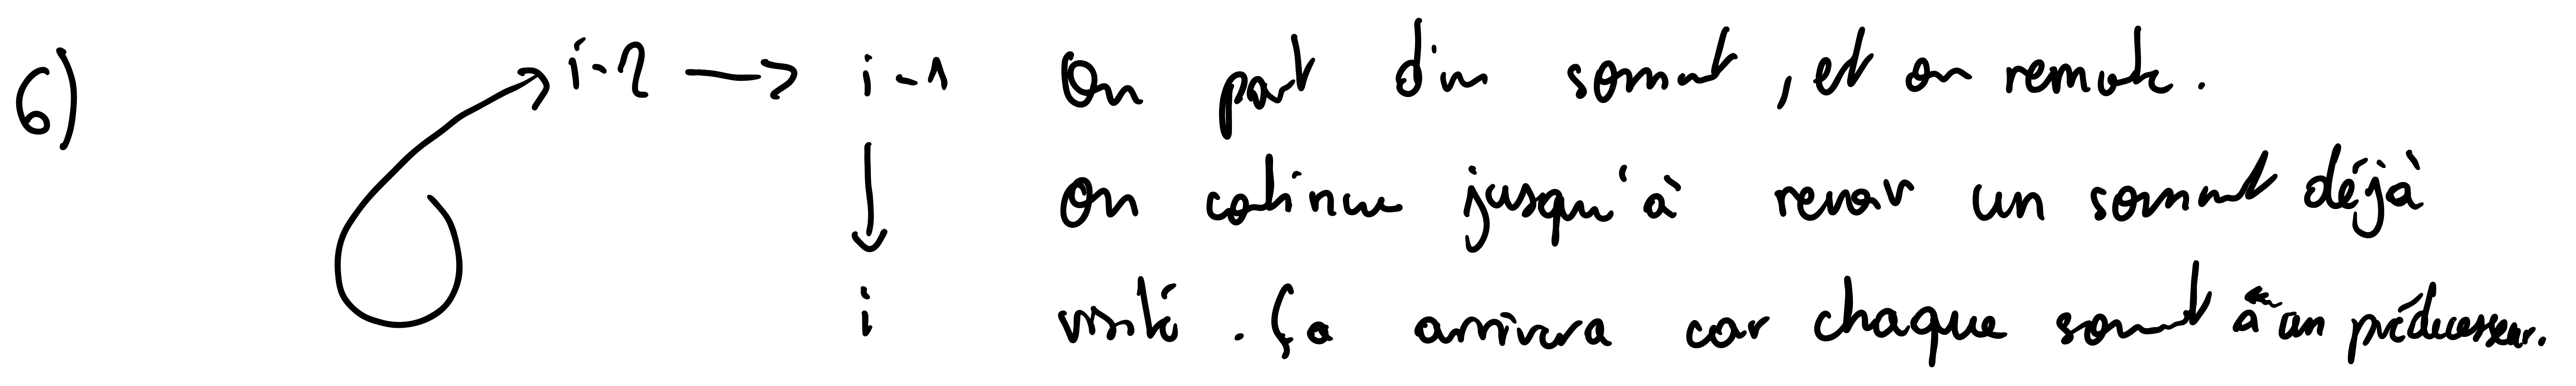 6) i-2 → i-1 On part d'un sommet, et on remonte.
On continue jusqu'à revoir un sommet déjà
i visité. Ça arrivera car chaque sommet a un prédecesseur.